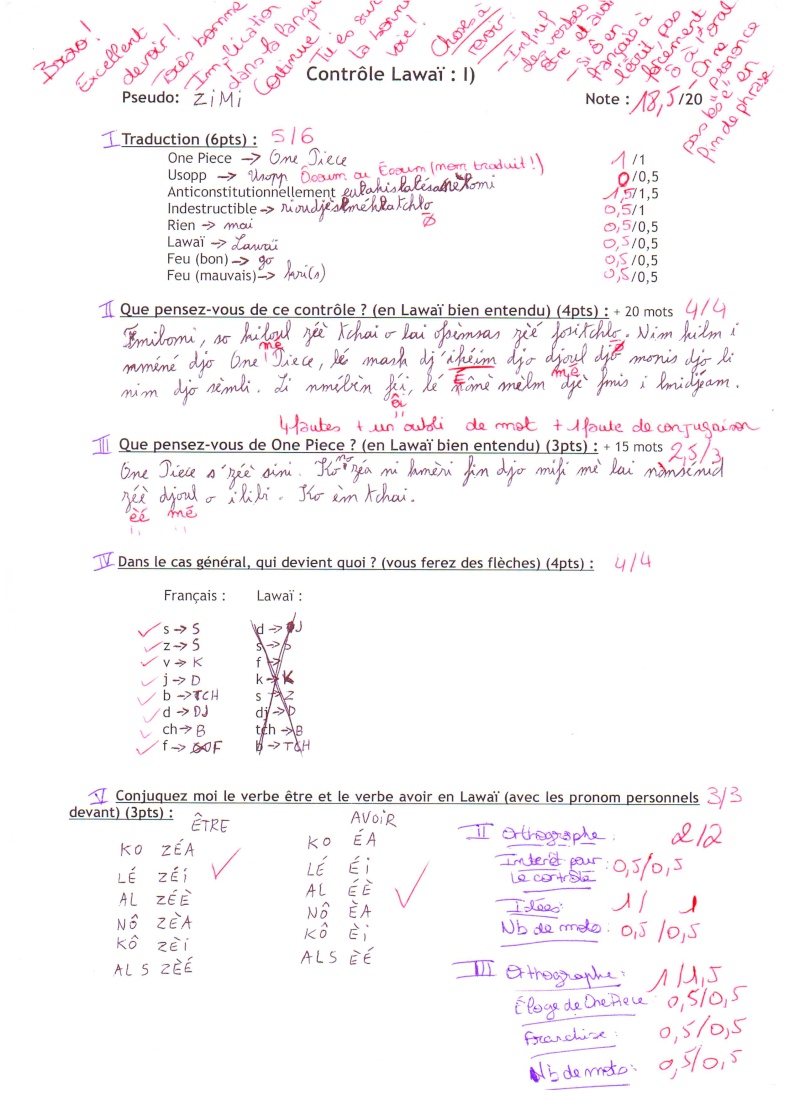 Bravo!
Excellent devoir!
Très bonne
Implication
dans la langue
Continue!
Tu es sur
la bonne
voie!
Choses à
revoir:
- Infinif
des verbes
être et avoir
- si ô en
français à
l'écrit pas
forcément
ô à l'oral
- On ne
prononce
pas "o" "ë" en
fin de phrase
Contrôle Lawaï : I)
Pseudo: ZiMi
Note : 18,5/20
I Traduction (6pts) : 5/6
One Piece → One Piece 1/1
Usopp → Usopp Ôcoum ou Écoum (nom traduit!) 0/0,5
Anticonstitutionnellement 1,5/1,5
Indestructible → 0,5/1
Rien → mai 0,5/0,5
Lawaï → Lawaï 0,5/0,5
Feu (bon) → go 0,5/0,5
Feu (mauvais) → kri(s) 0,5/0,5
II Que pensez-vous de ce contrôle ? (en Lawaï bien entendu) (4pts) : + 20 mots 4/4
so kiloul zéè tchai o lai Nim kilm i
djo One Piece, lé mash djo djoul djô monis djo li
nim djo sèmli. Li lé mèlm djè fmis i
4 fautes + un oubli de mot + 1 faute de conjugaison
III Que pensez-vous de One Piece ? (en Lawaï bien entendu) (3pts) : + 15 mots 2,5/3
One Piece s'zéè sini. Ko mo zéa ni kmèri fin djo mifi mè lai
zéè djoul o ilili. Ko èm tchai.
èé mé
IV Dans le cas général, qui devient quoi ? (vous ferez des flèches) (4pts) : 4/4
Français : Lawaï :
s → S d → DJ
z → S s → S
v → K f →
j → D k → K
b → TCH s → Z
d → DJ dj → D
ch → B tch → B
f → F b → TCH
V Conjuquez moi le verbe être et le verbe avoir en Lawaï (avec les pronom personnels 3/3
devant) (3pts) :
ÊTRE AVOIR
KO ZÉA KO ÉA
LÉ ZÉi LÉ Éi
AL ZÉÈ AL ÉÈ
NÔ ZÈA NÔ ÈA
KÔ ZÈi KÔ Èi
ALS ZÈÉ ALS ÈÉ
II Orthographe : 2/2
Interêt pour
le contrôle : 0,5/0,5
Idées : 1/1
Nb de mots : 0,5/0,5
III Orthographe : 1/1,5
Éloge de One Piece : 0,5/0,5
Franchise : 0,5/0,5
Nb de mots : 0,5/0,5